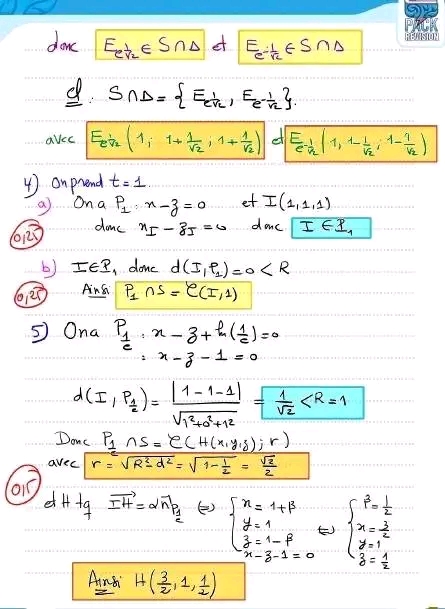 PACK
REVISION
donc E_{e^{1/√2}} ∈ S∩Δ et E_{e^{-1/√2}} ∈ S∩Δ
cl : S∩Δ = {E_{e^{1/√2}}, E_{e^{-1/√2}}}.
avec E_{e^{1/√2}} (1; 1+1/√2, 1+1/√2) et E_{e^{-1/√2}} (1, 1-1/√2; 1-1/√2)
4) On prend t = 1.
a) On a P₁ : x-z=0 et I(1,1,1)
0,25
donc x_I - z_I = 0 donc I ∈ P₁
b) I∈P₁ donc d(I,P₁)=0 < R
0,25
Ainsi P₁ ∩ S = C(I,1)
5) On a P_{1/e} : x - z + ln(1/e) = 0
: x - z - 1 = 0
d(I, P_{1/e}) = |1-1-1| / √(1²+0²+1²) = 1/√2 < R = 1
Donc P_{1/e} ∩ S = C(H(x,y,z); r)
avec r = √(R²-d²) = √(1-1/2) = √2/2
0,5
et H tq IH⃗ = αn⃗_{P_{1/e}} ⇔ { x = 1+β y = 1 z = 1-β x-z-1=0 ⇔ { β = 1/2 x = 3/2 y = 1 z = 1/2
Ainsi H(3/2, 1, 1/2)